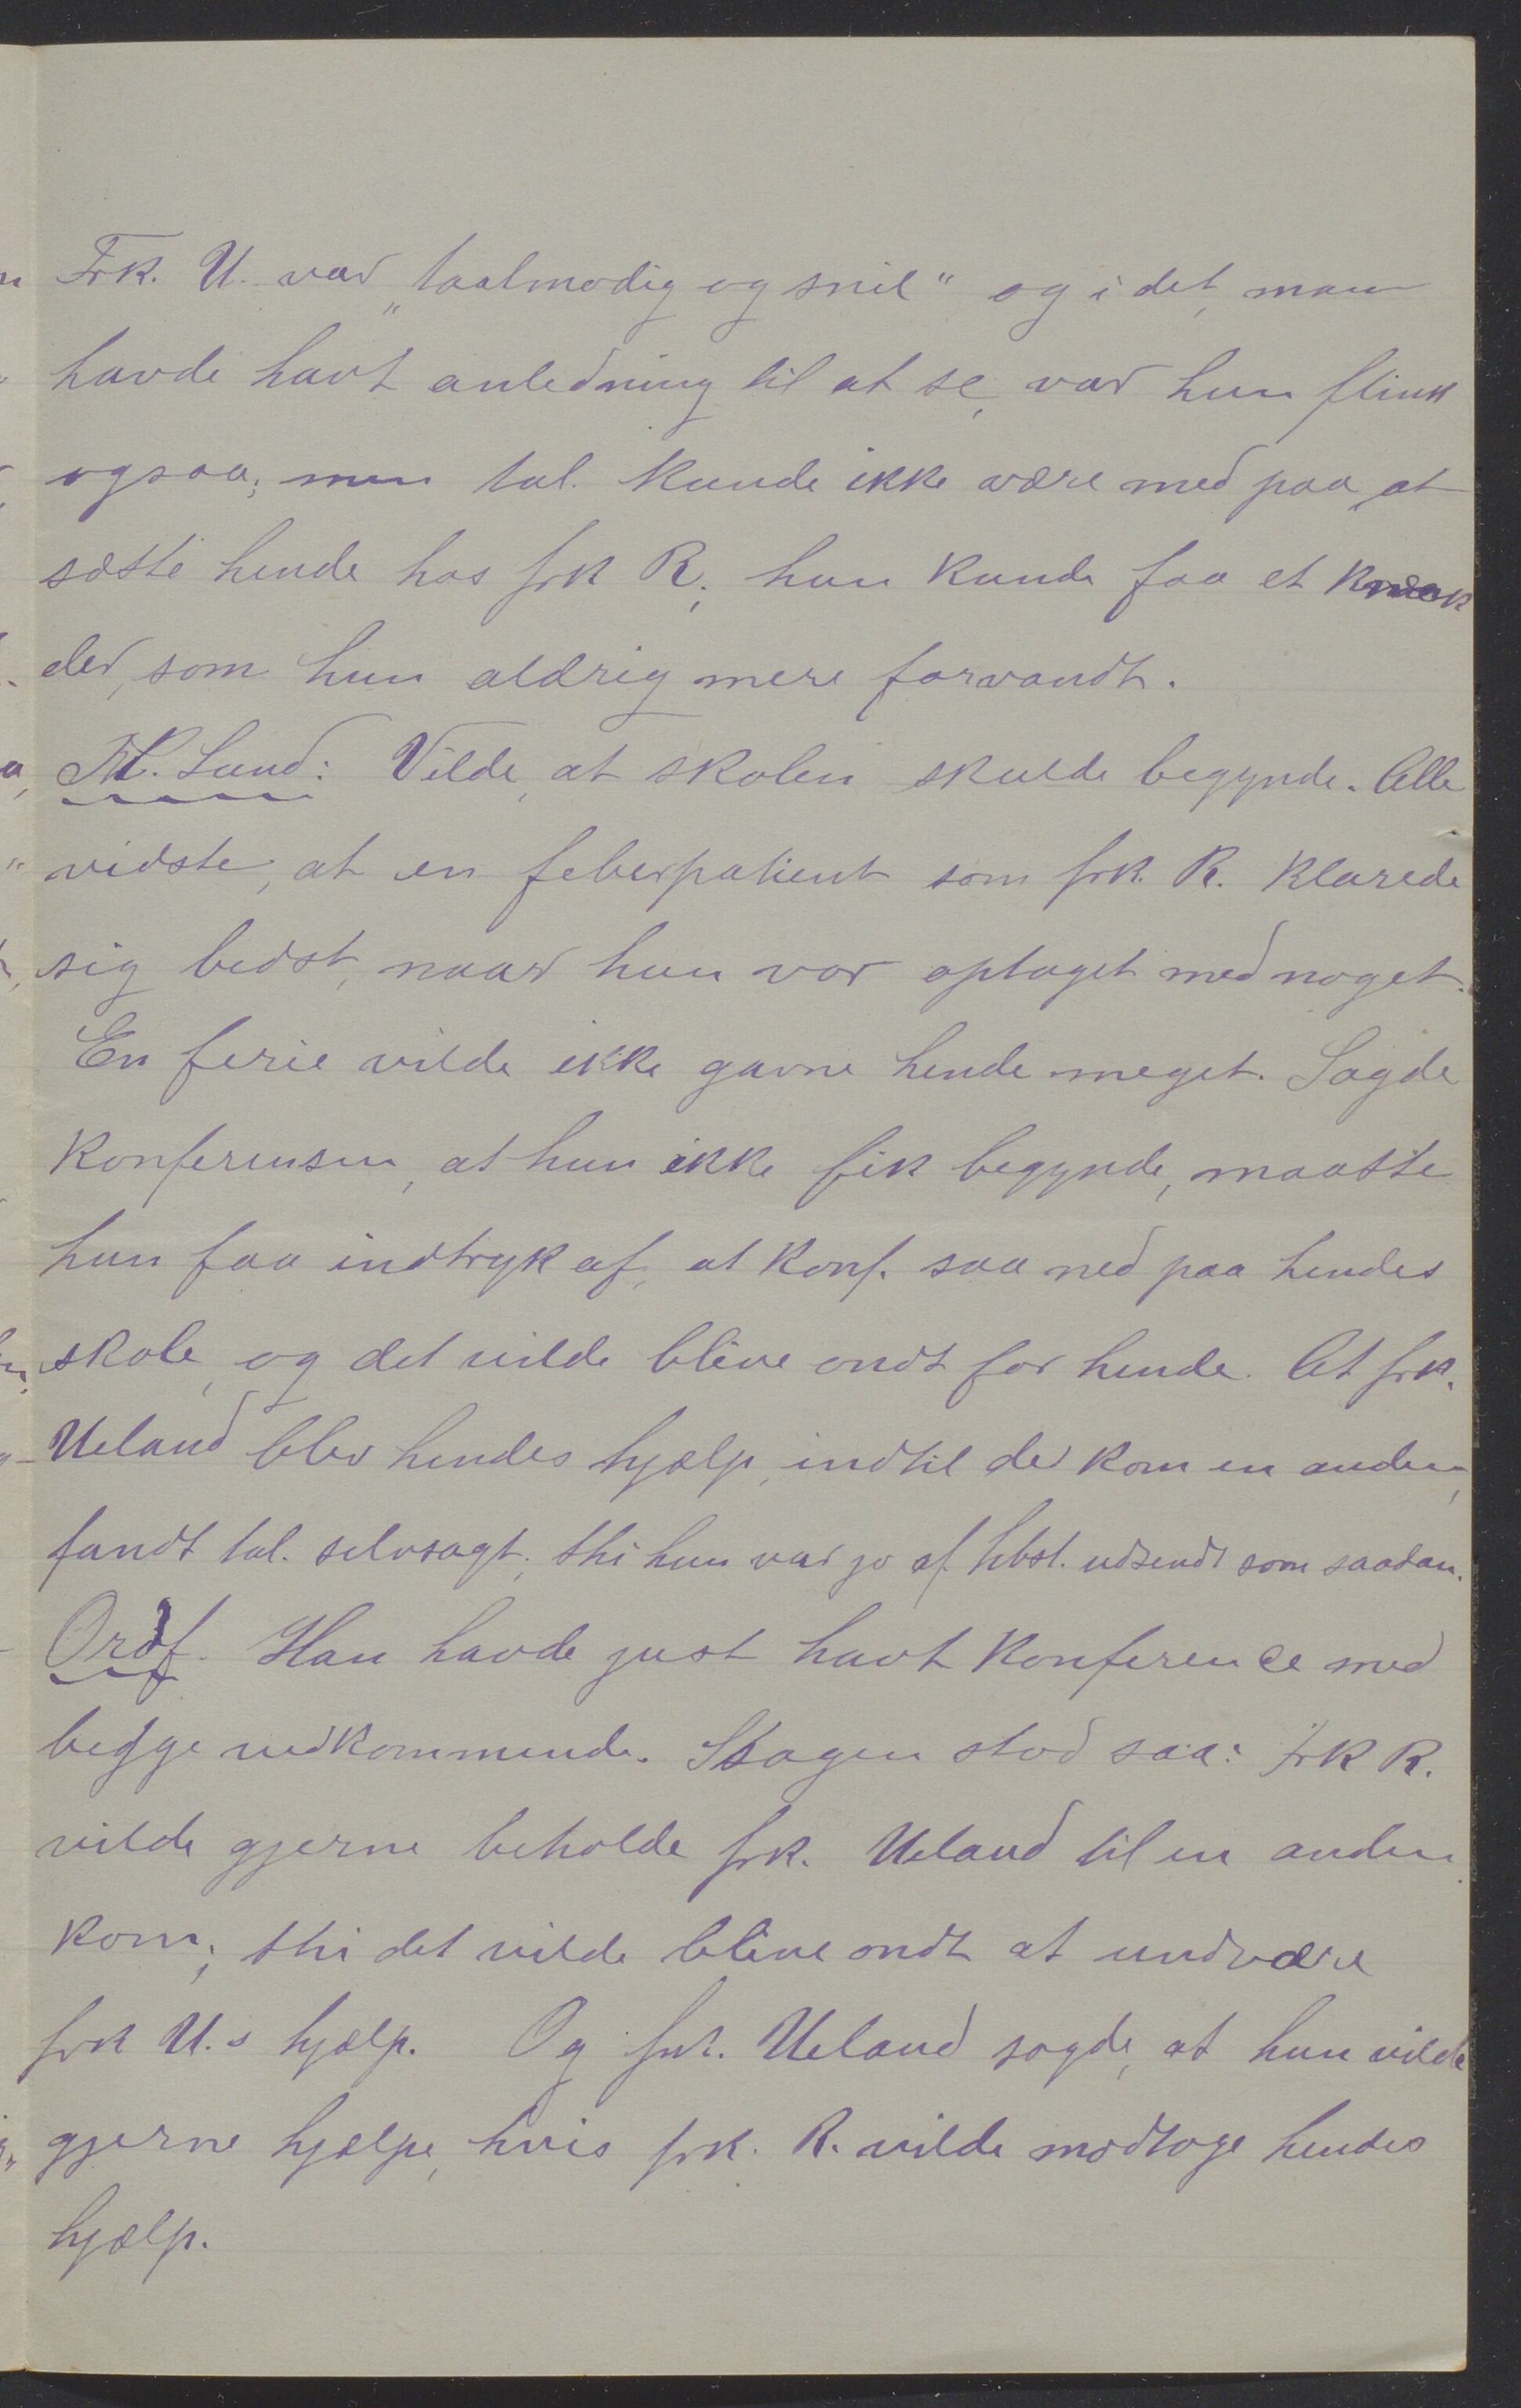 Frk. U. var „taalmodig og snil" og i det, man
havde havt anledning til at se, var hun flink
ogsaa; men tal. kunde ikke være med paa, at
sætte hende hos frk R.; hun kunde faa et knæk
der, som hun aldrig mere forvandt.
M. Lund: Vilde, at skolen skulde begynde. Alle
vidste, at en feberpatient som frk. R. klarede
sig bedst, naar hun var optaget med noget.
En ferie vilde ikke gavne hende meget. Sagde
konferensen, at hun ikke fik begynde, maatte
hun faa indtryk af, at konf. saa ned paa hendes
skole, og det vilde blive ondt for hende. At frk.
Ueland blev hendes hjælp, indtil der kom en anden,
fandt tal. selvsagt; thi hun var jo af hbst. udsendt som saadan.
Ordf. Han havde just havt konference med
begge vedkommende. Sagen stod saa: frk R.
vilde gjerne beholde frk. Ueland til en anden
kom; thi det vilde blive ondt at undvære
frk U.s hjælp. Og frk. Ueland sagde, at hun vilde
gjerne hjælpe, hvis frk. R. vilde modtage hendes
hjælp.